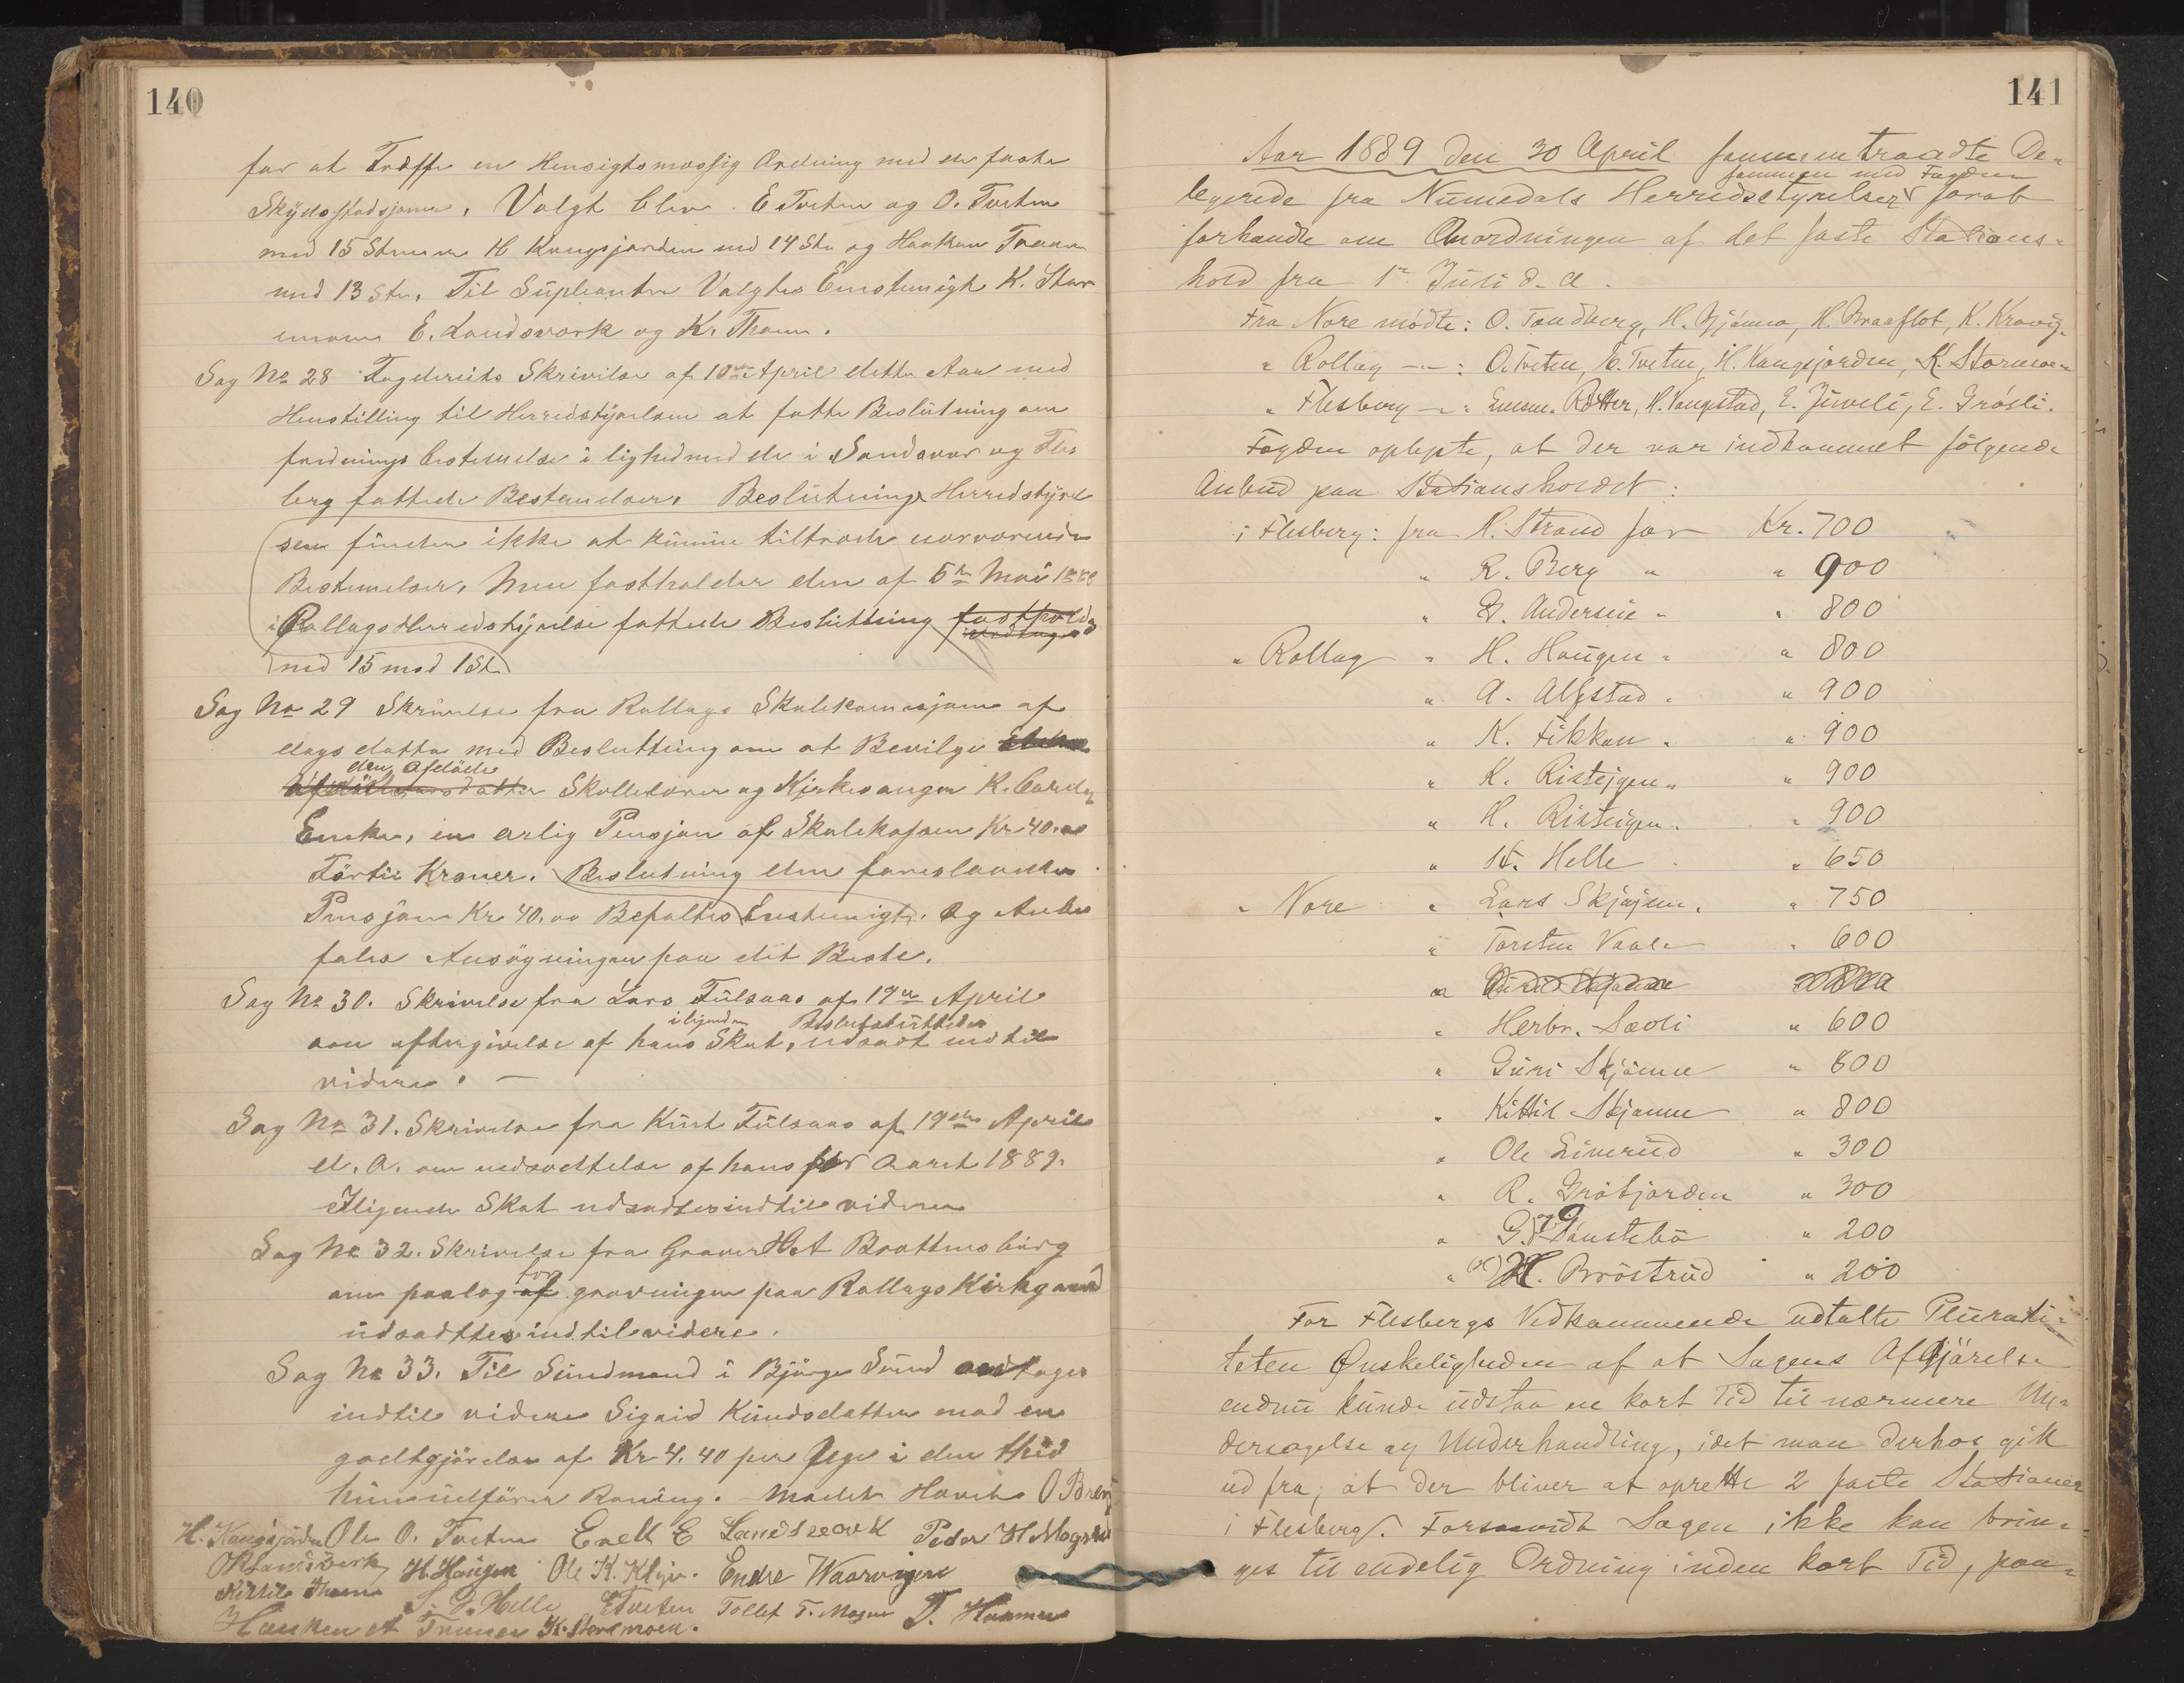 140
for at Træffe en Hensigtsmæssig Ordning med de faste
Skydsstadsjoner. Valgt blev E Tveten og O. Tveten
med 15 Stemmer H Kongsjorden med 14 Ste og Haakon Traaen
med 13 Ste. Til Supleanter Valgtes Enstemigt K. Stor
emoen E. Landsværk og Kr. Thoen.
Sag No 28 Fogderiets Skrivelse af 10de April dette Aar med
Henstilling til Herredstyrelsen at fatte Beslutning om
frednings bestemelse i lighed med de i Sandsvær og Fles
berg fattede Bestemelser. Beslutning Herredstyrel
sen finder ikke at kunne tiltræde nærværende
Bestemelser, Men fastholder den af 5te Mai 1888
i Rollags Herredstyrelse fattede Beslutning fastholdes
med 15 mod 1 St.
Sag No 29 Skrivelse fra Rollags Skolekomisjon af
dags datto med Beslutning om at Bevilge
den Afdöde
Skollelærer og Kirkesanger K.
Enke, en arlig Pensjon af Skolekassen Kr. 40.00
Förti Kroner. Beslutning den foreslaaede
Pensjon Kr 40.00 Befaltes Enstemigt. Og Anbe
fales Ansögningen paa det Beste.
Sag No 30. Skrivelse fra Lars Fulsaas af 19de April
iligende Beslutning
om eftergivelse af hans Skat, udsadt indtil
videre. —
Sag No 31. Skrivelse fra Knut Fulsaas af 19de April
d. A. om nedsættelse af hans for Aaret 1889.
Iligende Skat udsadtes indtil videre
Sag No 32. Skrivelse fra Graver Brattensborg
for
om paalæg af gravningen paa Rollags Kirkgaard
udsadttes indtil videre.
Sag No 33. Til Sundmand i Björge Sund andtages
indtil videre Sigrid Knudsdatter mod en
godtgjörelse af Kr 4.40 per Uge i den tid
hun udförer Roning. Mödet Hævet O Bren
H. Kongsjorden Ole O. Tveten Enelt E Landsværk Peder H Mogstad
Landsværk H. Haugen Ole K. Kljn. Endre Waarvigen
Kittil Thoen S. J. Helle E Tveten Tollef T. Mogen T. Hvammen
Haaken A Traaen K. Storemoen.
141
Aar 1889 den 30 April sammentraadte De-
sammen med Fogden
legerede fra Numedals Herredsstyrelser forat
forhandle om Anordningen af det faste Stations-
hold fra 1te Juli d. A.
Fra Nore mødte: O. Tandberg, H. Skjønne, H. Braaflot, K. Kravig.
" Rollag —"—: O. Tveten, E. Tveten, H. Kongsjorden, K. Stormoen
" Flesberg —"— Gunn. Ratter, H. Vangestad, E. Juveli, E. Grøsli.
Fogden oplyste, at der var indkommet følgende
Anbud paa Stationsholdet:
i Flesberg: fra H. Strand for Kr. 700
" R. Berg " " 900
" G. Andersen " " 800
" Rollag " H. Haugen " " 800
" A. Alfstad " " 900
" K. Fikkan " " 900
" K. Risteigen " " 900
" H. Risteigen " " 900
" St. Helle " 650
" Nore " Lars Skjønne " 750
" Torsten Vaale " 600
" Herbr. Sævli " 600
" Guri Skjønne " 800
" Kittil Skjønne " 800
" Ole Liverud " 300
" R. Grøtjorden " 300
" G. Tønstebø " 200
" H. Brøstrud " 200
For Flesbergs Vedkommende udtalte Plurali-
teten Ønskeligheden af at Sagens Afgjørelse
endnu kunde udstaa en kort Tid til nærmere Un-
dersøgelse og Underhandling, idet man derhos gik
ud fra, at der bliver at oprette 2 faste Stationer
i Flesberg. Forsaavidt Sagen ikke kan brin-
ges til endelig Ordning inden kort Tid, paa-